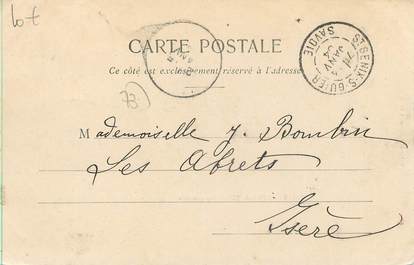 CARTE POSTALE
Ce côté est exclusivement réservé à l'adresse
ST GENIX-S-GUIER
JANV
04
SAVOIE
73
Mademoiselle J. Bombin
Les Abrets
Isère